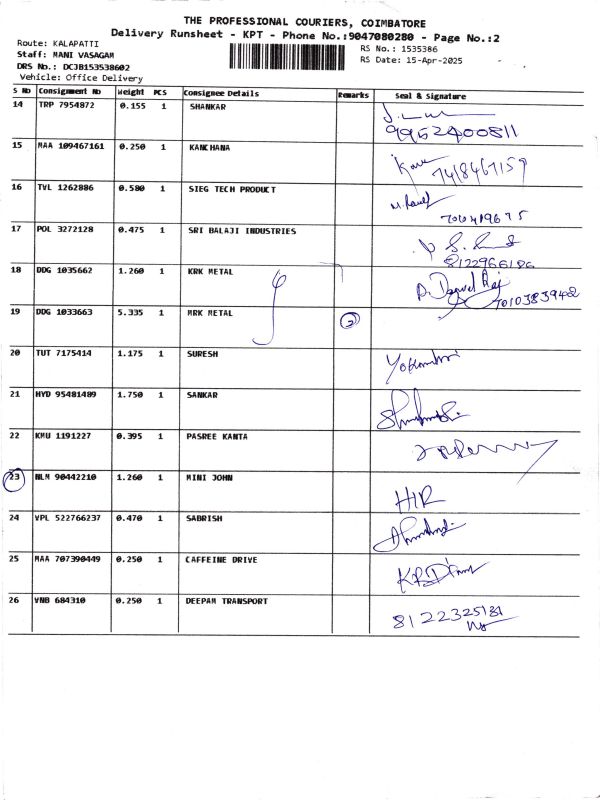 THE PROFESSIONAL COURIERS, COIMBATORE
Delivery Runsheet - KPT - Phone No.:9047080280 - Page No.:2
Route: KALAPATTI
Staff: MANI VASAGAM
DRS No.: DCJB153538602
Vehicle: Office Delivery
RS No.: 1535386
RS Date: 15-Apr-2025
S No Consignment No Weight PCS Consignee Details Remarks Seal & Signature
14 TRP 7954872 0.155 1 SHANKAR
9952400811
15 MAA 109467161 0.250 1 KANCHANA
7418467159
16 TVL 1262886 0.580 1 SIEG TECH PRODUCT
17 POL 3272128 0.475 1 SRI BALAJI INDUSTRIES
8122966186
18 DDG 1035662 1.260 1 KRK METAL
7010383942
19 DDG 1033663 5.335 1 MRK METAL
2
20 TUT 7175414 1.175 1 SURESH
21 HYD 95481489 1.750 1 SANKAR
22 KMU 1191227 0.395 1 PASREE KANTA
23 NLM 90442210 1.260 1 MINI JOHN
HIR
24 VPL 522766237 0.470 1 SABRISH
25 MAA 707390449 0.250 1 CAFFEINE DRIVE
26 VNB 684310 0.250 1 DEEPAM TRANSPORT
8122325181